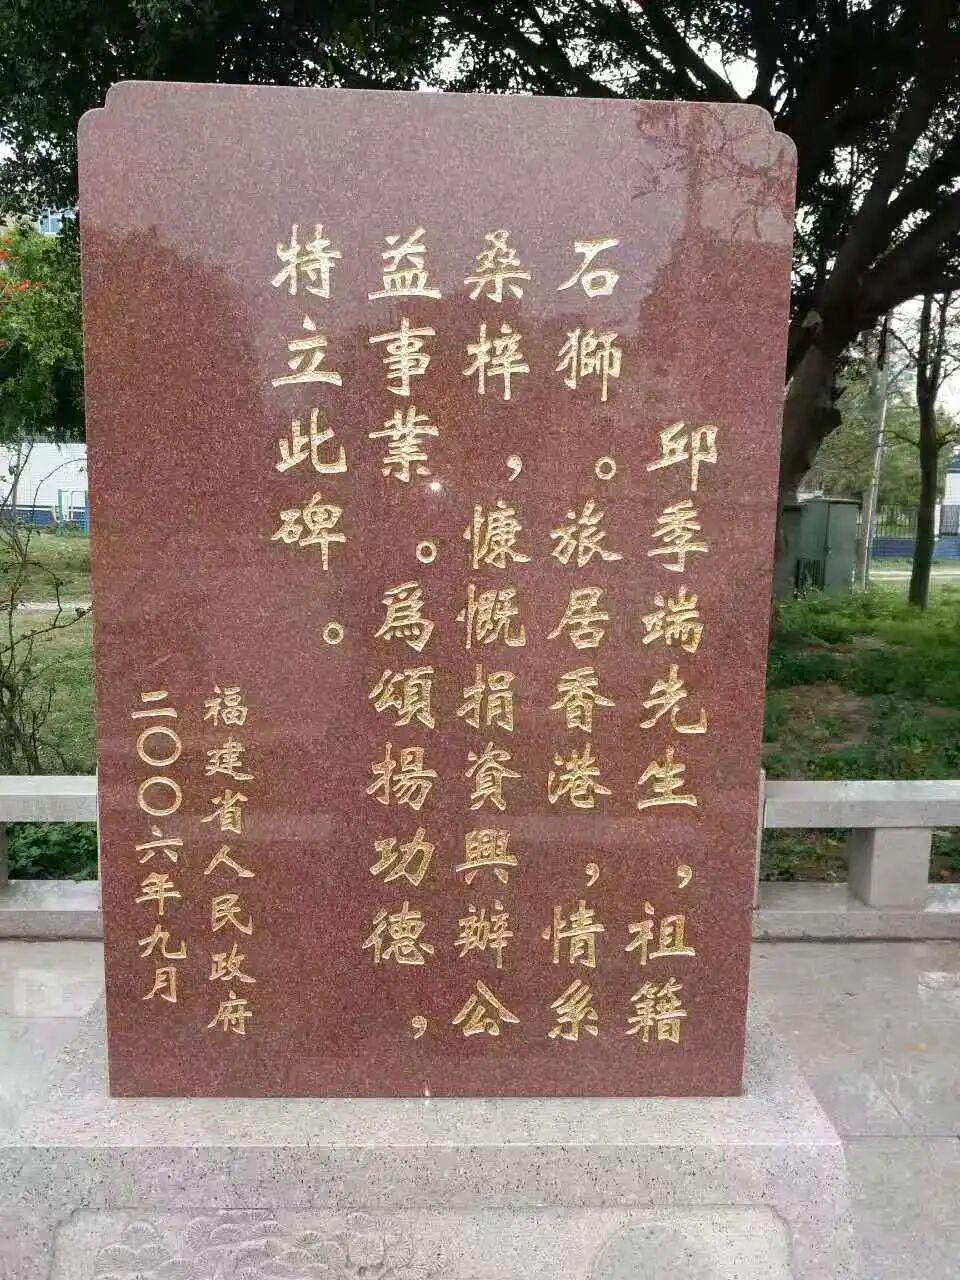 邱季端先生，祖籍
石獅。旅居香港，情系
桑梓，慷慨捐資興辦公
益事業。爲頌揚功德，
特立此碑。
福建省人民政府
二〇〇六年九月